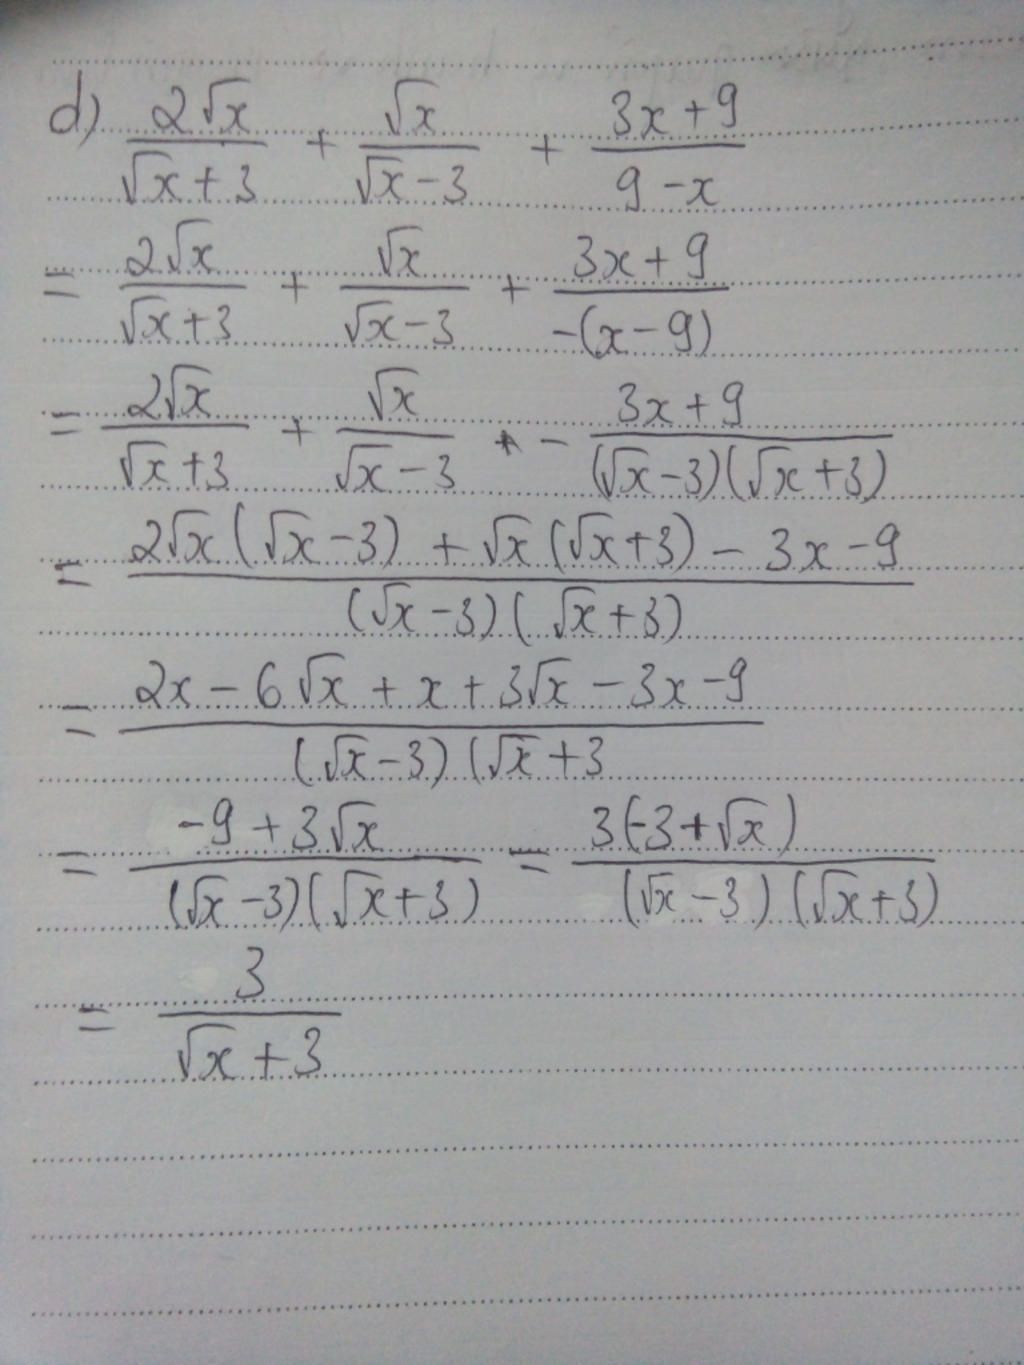 d) 2√x/(√x+3) + √x/(√x-3) + (3x+9)/(9-x)
= 2√x/(√x+3) + √x/(√x-3) + (3x+9)/(-(x-9))
= 2√x/(√x+3) + √x/(√x-3) - (3x+9)/((√x-3)(√x+3))
= (2√x(√x-3) + √x(√x+3) - 3x - 9)/((√x-3)(√x+3))
= (2x - 6√x + x + 3√x - 3x - 9)/((√x-3)(√x+3
= (-9+3√x)/((√x-3)(√x+3)) = 3(-3+√x)/((√x-3)(√x+3))
= 3/(√x+3)